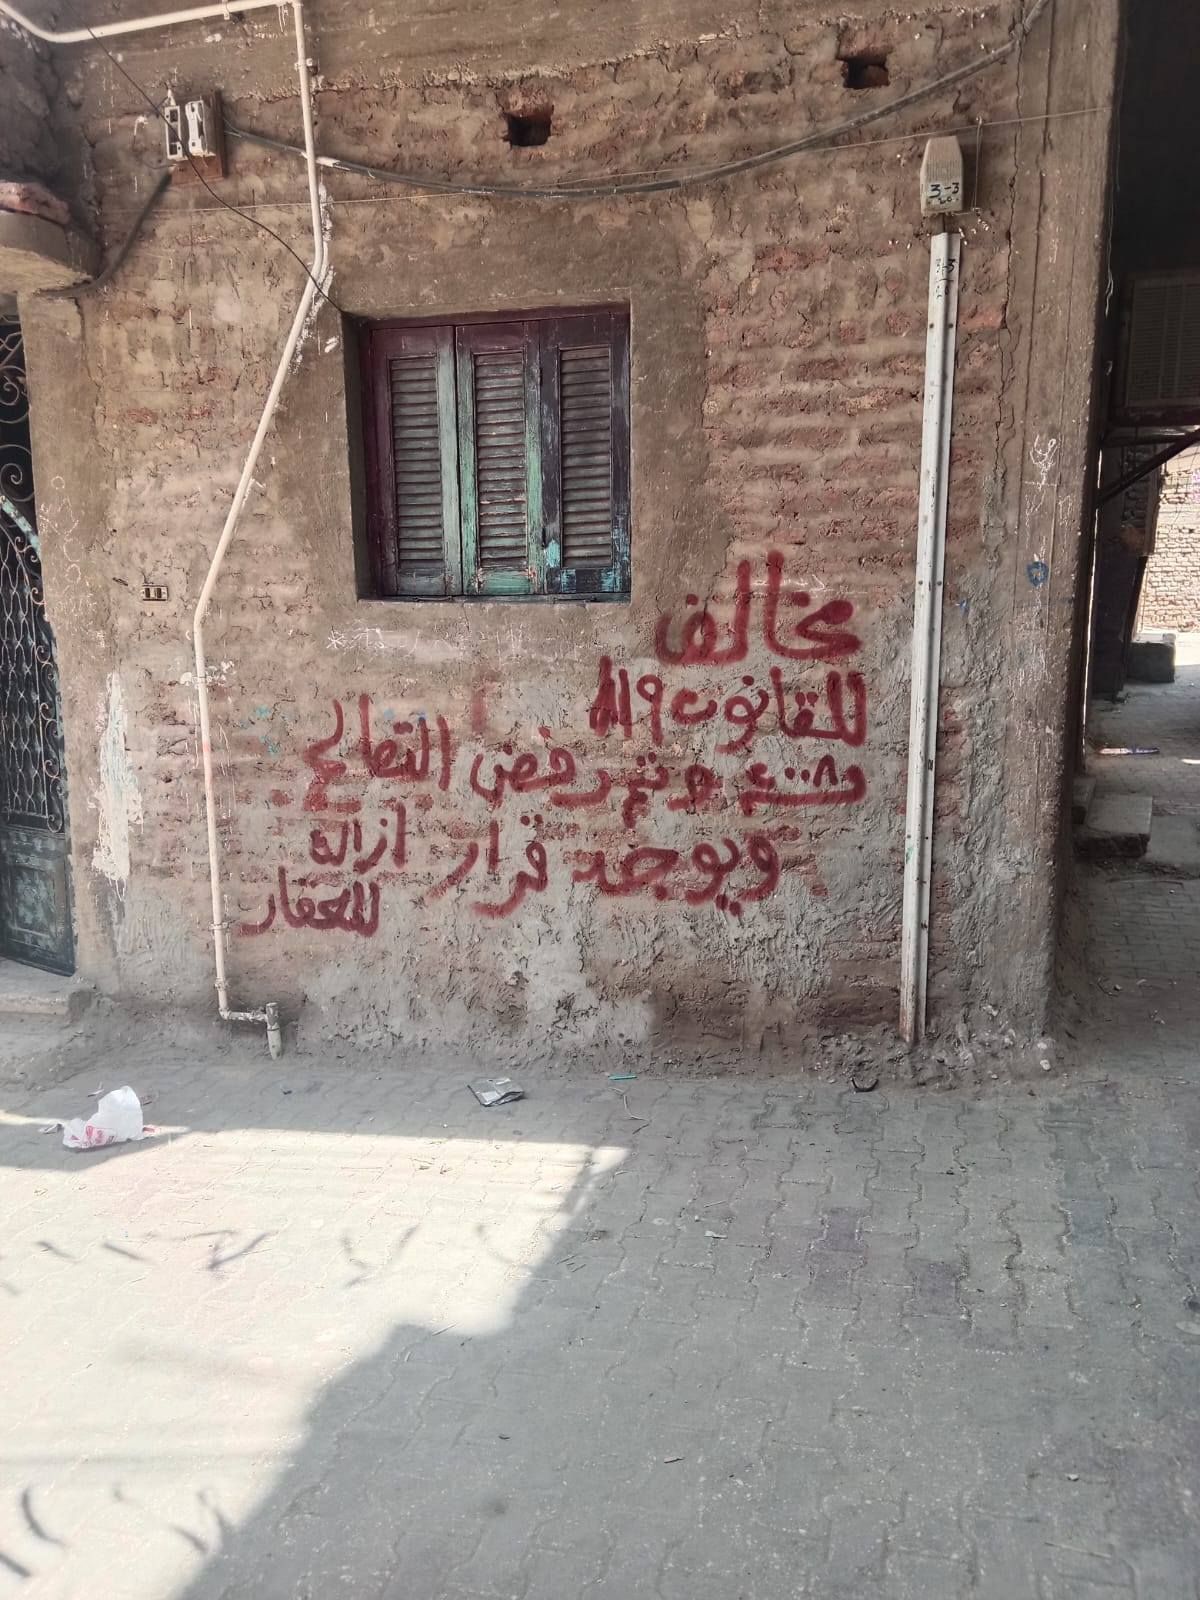 3-3
3-3
مخالف
للقانون ١١٩
٢٠٠٨ وتم رفض التصالح
ويوجد قرار ازاله
للعقار